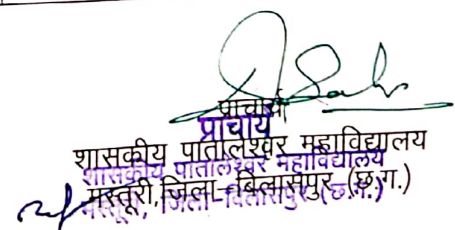 प्राचार्य
प्राचार्य
शासकीय पातालेश्वर महाविद्यालय
शासकीय पातालेश्वर महाविद्यालय
मस्तूरी, जिला-बिलासपुर (छ.ग.)
मस्तूरी, जिला-बिलासपुर (छ.ग.)